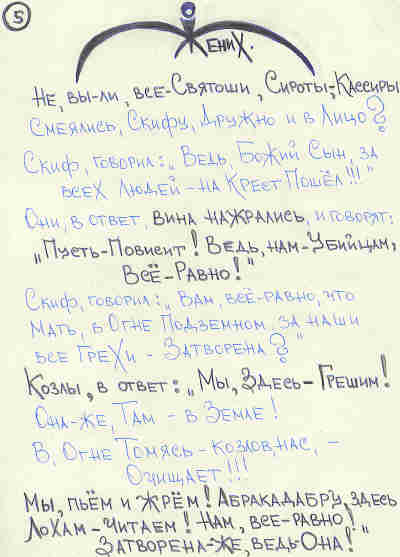 5
Жених.
Не, вы-ли, все-Святоши, Сироты, Кассиры
Смеялись, Скифу, Дружно и в Лицо?
Скиф, говорил: „Ведь, Божий Сын, за
всех Людей – на Крест Пошёл!!!"
Они, в ответ, вина нажрались, и говорят:
„Пусть-Повисит! Ведь, нам-Убийцам,
Всё-Равно!"
Скиф, говорил: „Вам, всё-равно, что
Мать, в Огне Подземном, за наши
все Грехи – Затворена?"
Козлы, в ответ: „Мы, Здесь-Грешим!
Она-же, Там – в Земле!
В, Огне Томясь-козлов, нас, –
Очищает!!!
Мы, пьём и жрём! Абракадабру, здесь
Лохам-Читаем! Нам, все-равно!
Затворена-же, ведь-Она!"